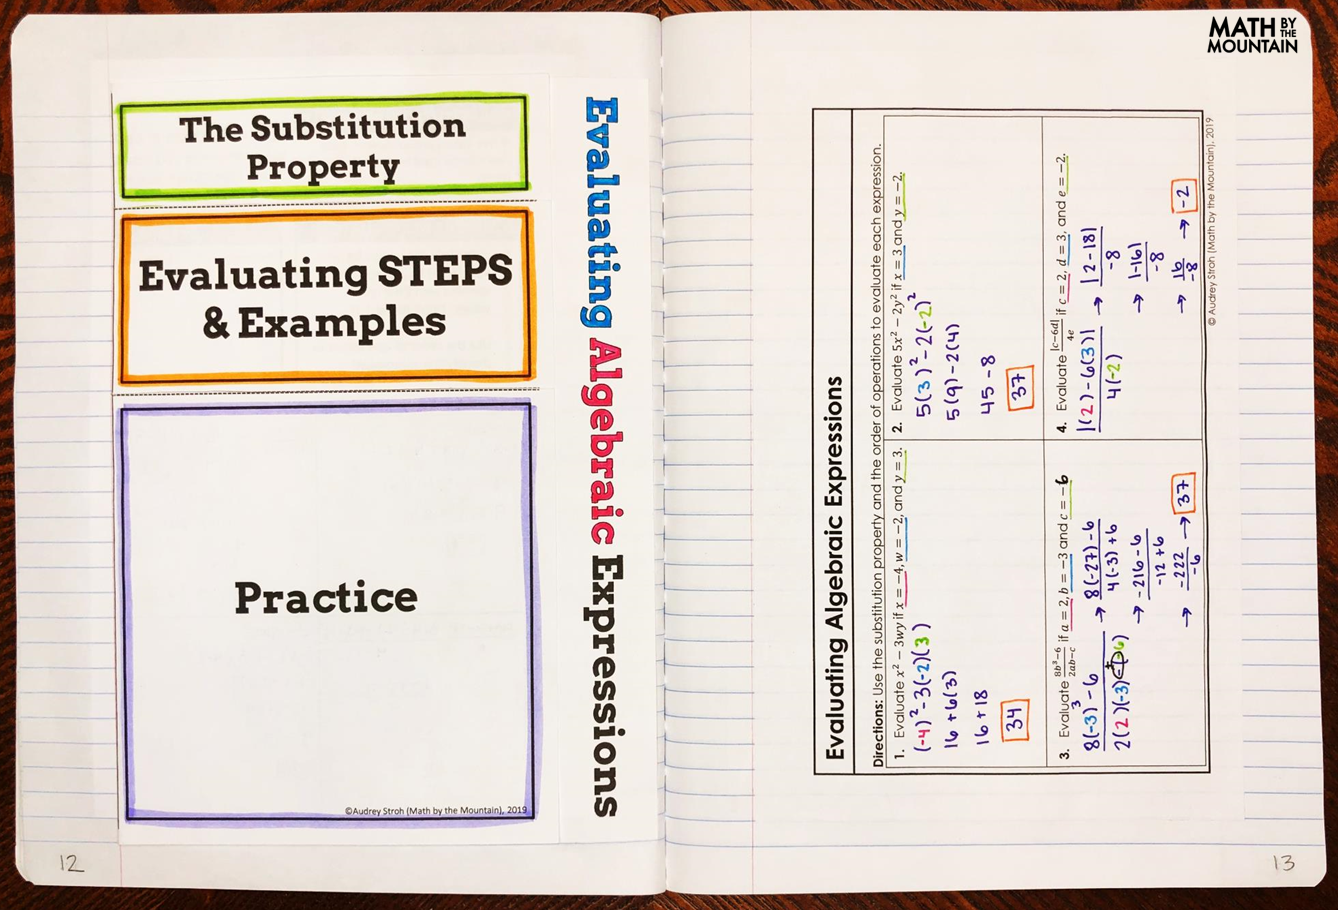 MATH BY THE
MOUNTAIN
The Substitution
Property
Evaluating STEPS
& Examples
Practice
©Audrey Stroh (Math by the Mountain), 2019
Evaluating Algebraic Expressions
12
Evaluating Algebraic Expressions
Directions: Use the substitution property and the order of operations to evaluate each expression.
1. Evaluate x² − 3wy if x = −4, w = −2, and y = 3.
(-4)² - 3(-2)(3)
16 + 6(3)
16 + 18
34
2. Evaluate 5x² − 2y² if x = 3 and y = −2.
5(3)² - 2(-2)²
5(9) - 2(4)
45 - 8
37
3. Evaluate 8b³−6 / 2ab−c if a = 2, b = −3 and c = −6
8(-3)³ - 6 / 2(2)(-3) (-6)
→ 8(-27) - 6 / 4(-3) + 6
→ -216 - 6 / -12 + 6
→ -222 / -6 → 37
4. Evaluate |c−6d| / 4e if c = 2, d = 3, and e = −2.
|(2) - 6(3)| / 4(-2)
→ |2 - 18| / -8
→ |-16| / -8
→ 16 / -8 → -2
© Audrey Stroh (Math by the Mountain), 2019
13